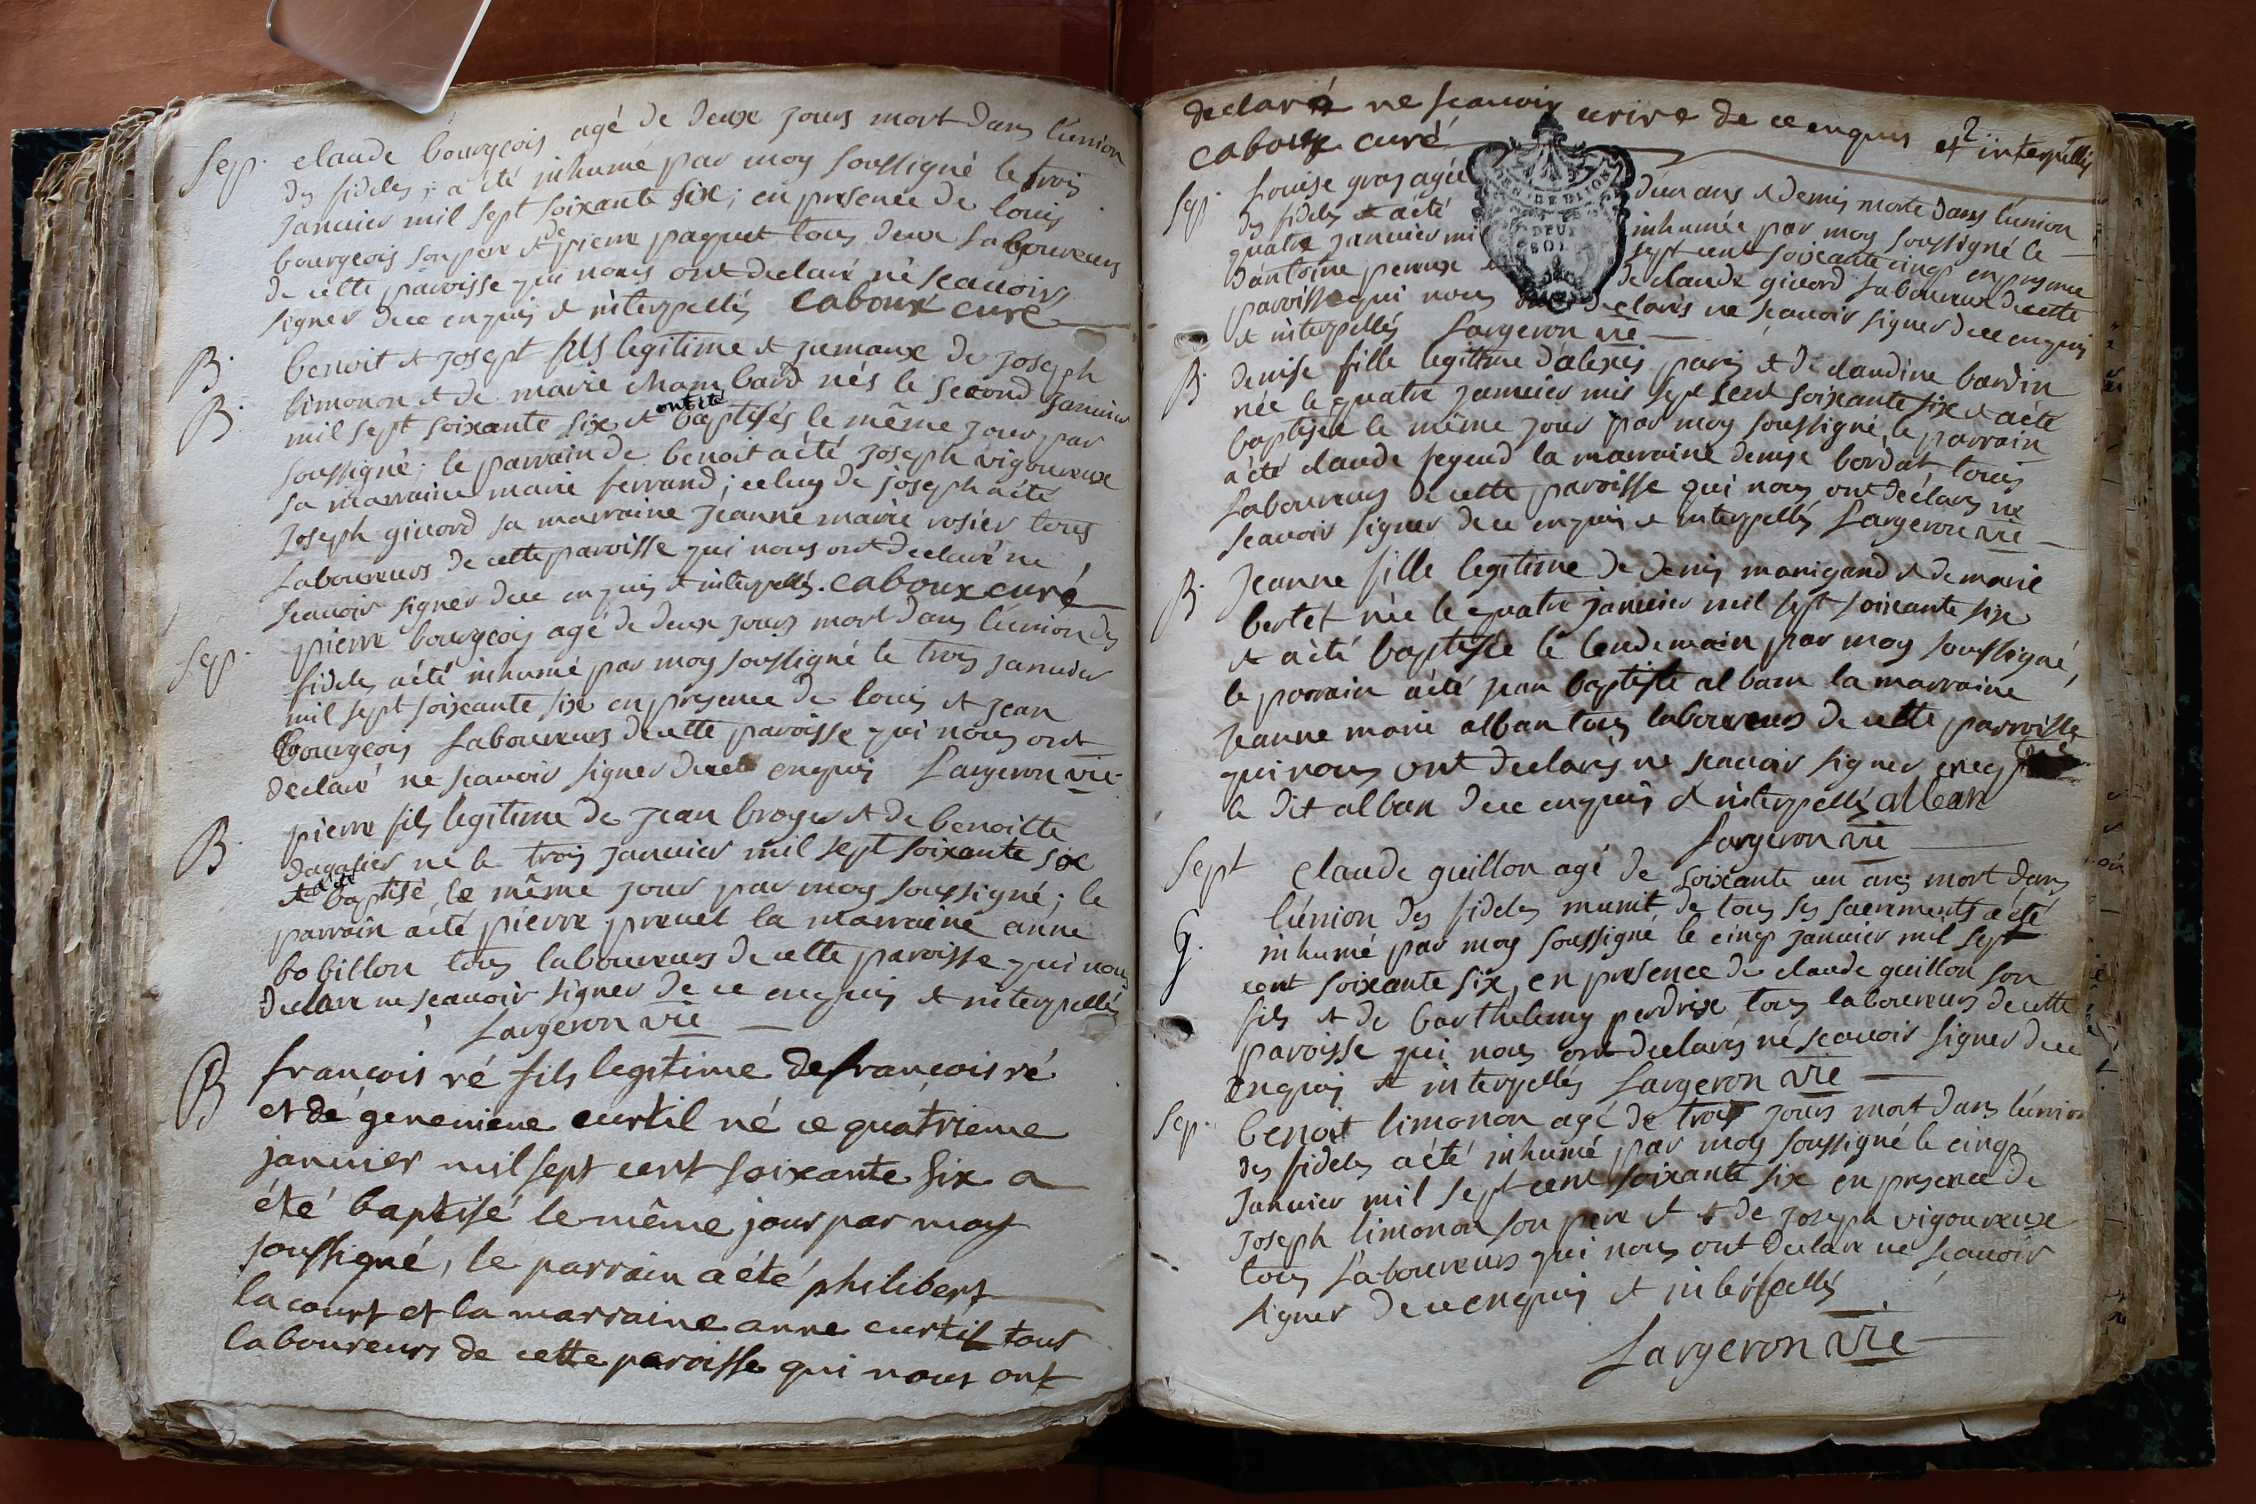 Sep. claude bourgeois agé de deux jours mort dans l'union
des fideles; a été inhumé par moy soussigné le trois
janvier mil sept soixante six; en presence de louis
bourgeois son pere et de pierre paquet tous deux laboureurs
de cette paroisse qui nous ont declaré ne scavoir
signer de ce enquis et interpellés caboux curé
B. benoit et josept fils legitime et jumaux de joseph
B. limonon et de marie chambard nés le second janvier
mil sept soixante six et ont été baptisés le même jour par
soussigné; le parrain de benoit a été joseph vigoureux
sa marraine marie ferrand; celuy de joseph a été
joseph givord sa marraine jeanne marie rosier tous
laboureurs de cette paroisse qui nous ont declaré ne
scavoir signer de ce enquis et interpellés. caboux curé
Sep. pierre bourgeois agé de deux jours mort dans l'union des
fideles a été inhumé par moy soussigné le trois janvier
mil sept soixante six en presence de louis et jean
bourgeois laboureurs de cette paroisse qui nous ont
declaré ne scavoir signer de ce enquis Largeron vic
B. pierre fils legitime de jean broyer et de benoitte
dagalier né le trois janvier mil sept soixante six
et a été baptisé le même jour par moy soussigné; le
parrain a été pierre pruet la marraine anne
bobillon tous laboureurs de cette paroisse qui nous
declaré ne scavoir signer de ce enquis et interpellés
Largeron vic
B françois ré fils legitime de françois ré
et de genevieve curtil né ce quatrieme
janvier mil sept cent soixante six a
été baptisé le même jour par moy
soussigné, le parrain a été philibert
lacourt et la marraine anne curtil tous
laboureurs de cette paroisse qui nous ont
declaré ne scavoir ecrire de ce enquis et interpellés
2
caboux curé
Sep. Louise gras agée d'un ans et demis morte dans l'union
des fideles a été inhumée par moy soussigné le
quatre janvier mil sept cent soixante cinq en presence
d'antoine perrux de claude givord laboureur de cette
paroisse qui nous declarés ne scavoir signer de ce enquis
et interpellés Largeron vic
DEUX
SOLS
B. denise fille legitime d'alexis paris et de claudine bardin
née le quatre janvier mil sept cent soixante six et a été
baptisée le même jour par moy soussigné, le parrain
a été claude seyeud la marraine denise bordat tous
laboureurs de cette paroisse qui nous ont declarés ne
scavoir signer de ce enquis et interpellés Largeron vic
B. Jeanne fille legitime de denis manigand et de marie
bertet née le quatre janvier mil sept soixante six
et a été baptisée le lendemain par moy soussigné,
le parrain a été jean baptiste alban la marraine
jeanne marie alban tous laboureurs de cette parroisse
qui nous ont declarés ne scavoir signer
le dit alban de ce enquis et interpellés alban
Largeron vic
Sept Claude guillon agé de soixante un ans mort dans
l'union des fideles munit de tous ses sacrements a été
G. inhumé par moy soussigné le cinq janvier mil sept
cent soixante six, en presence de claude guillon son
fils et de barthelemy perdrix tous laboureurs de cette
paroisse qui nous ont declarés ne scavoir signer de ce
enquis et interpellés Largeron vic
Sep. benoit limonon agé de trois jours mort dans l'union
des fideles a été inhumé par moy soussigné le cinq
Janvier mil sept cent soixante six en presence de
joseph limonon son pere et de joseph vigoureux
tous laboureurs qui nous ont declaré ne scavoir
signer de ce enquis et interpellés
Largeron vic